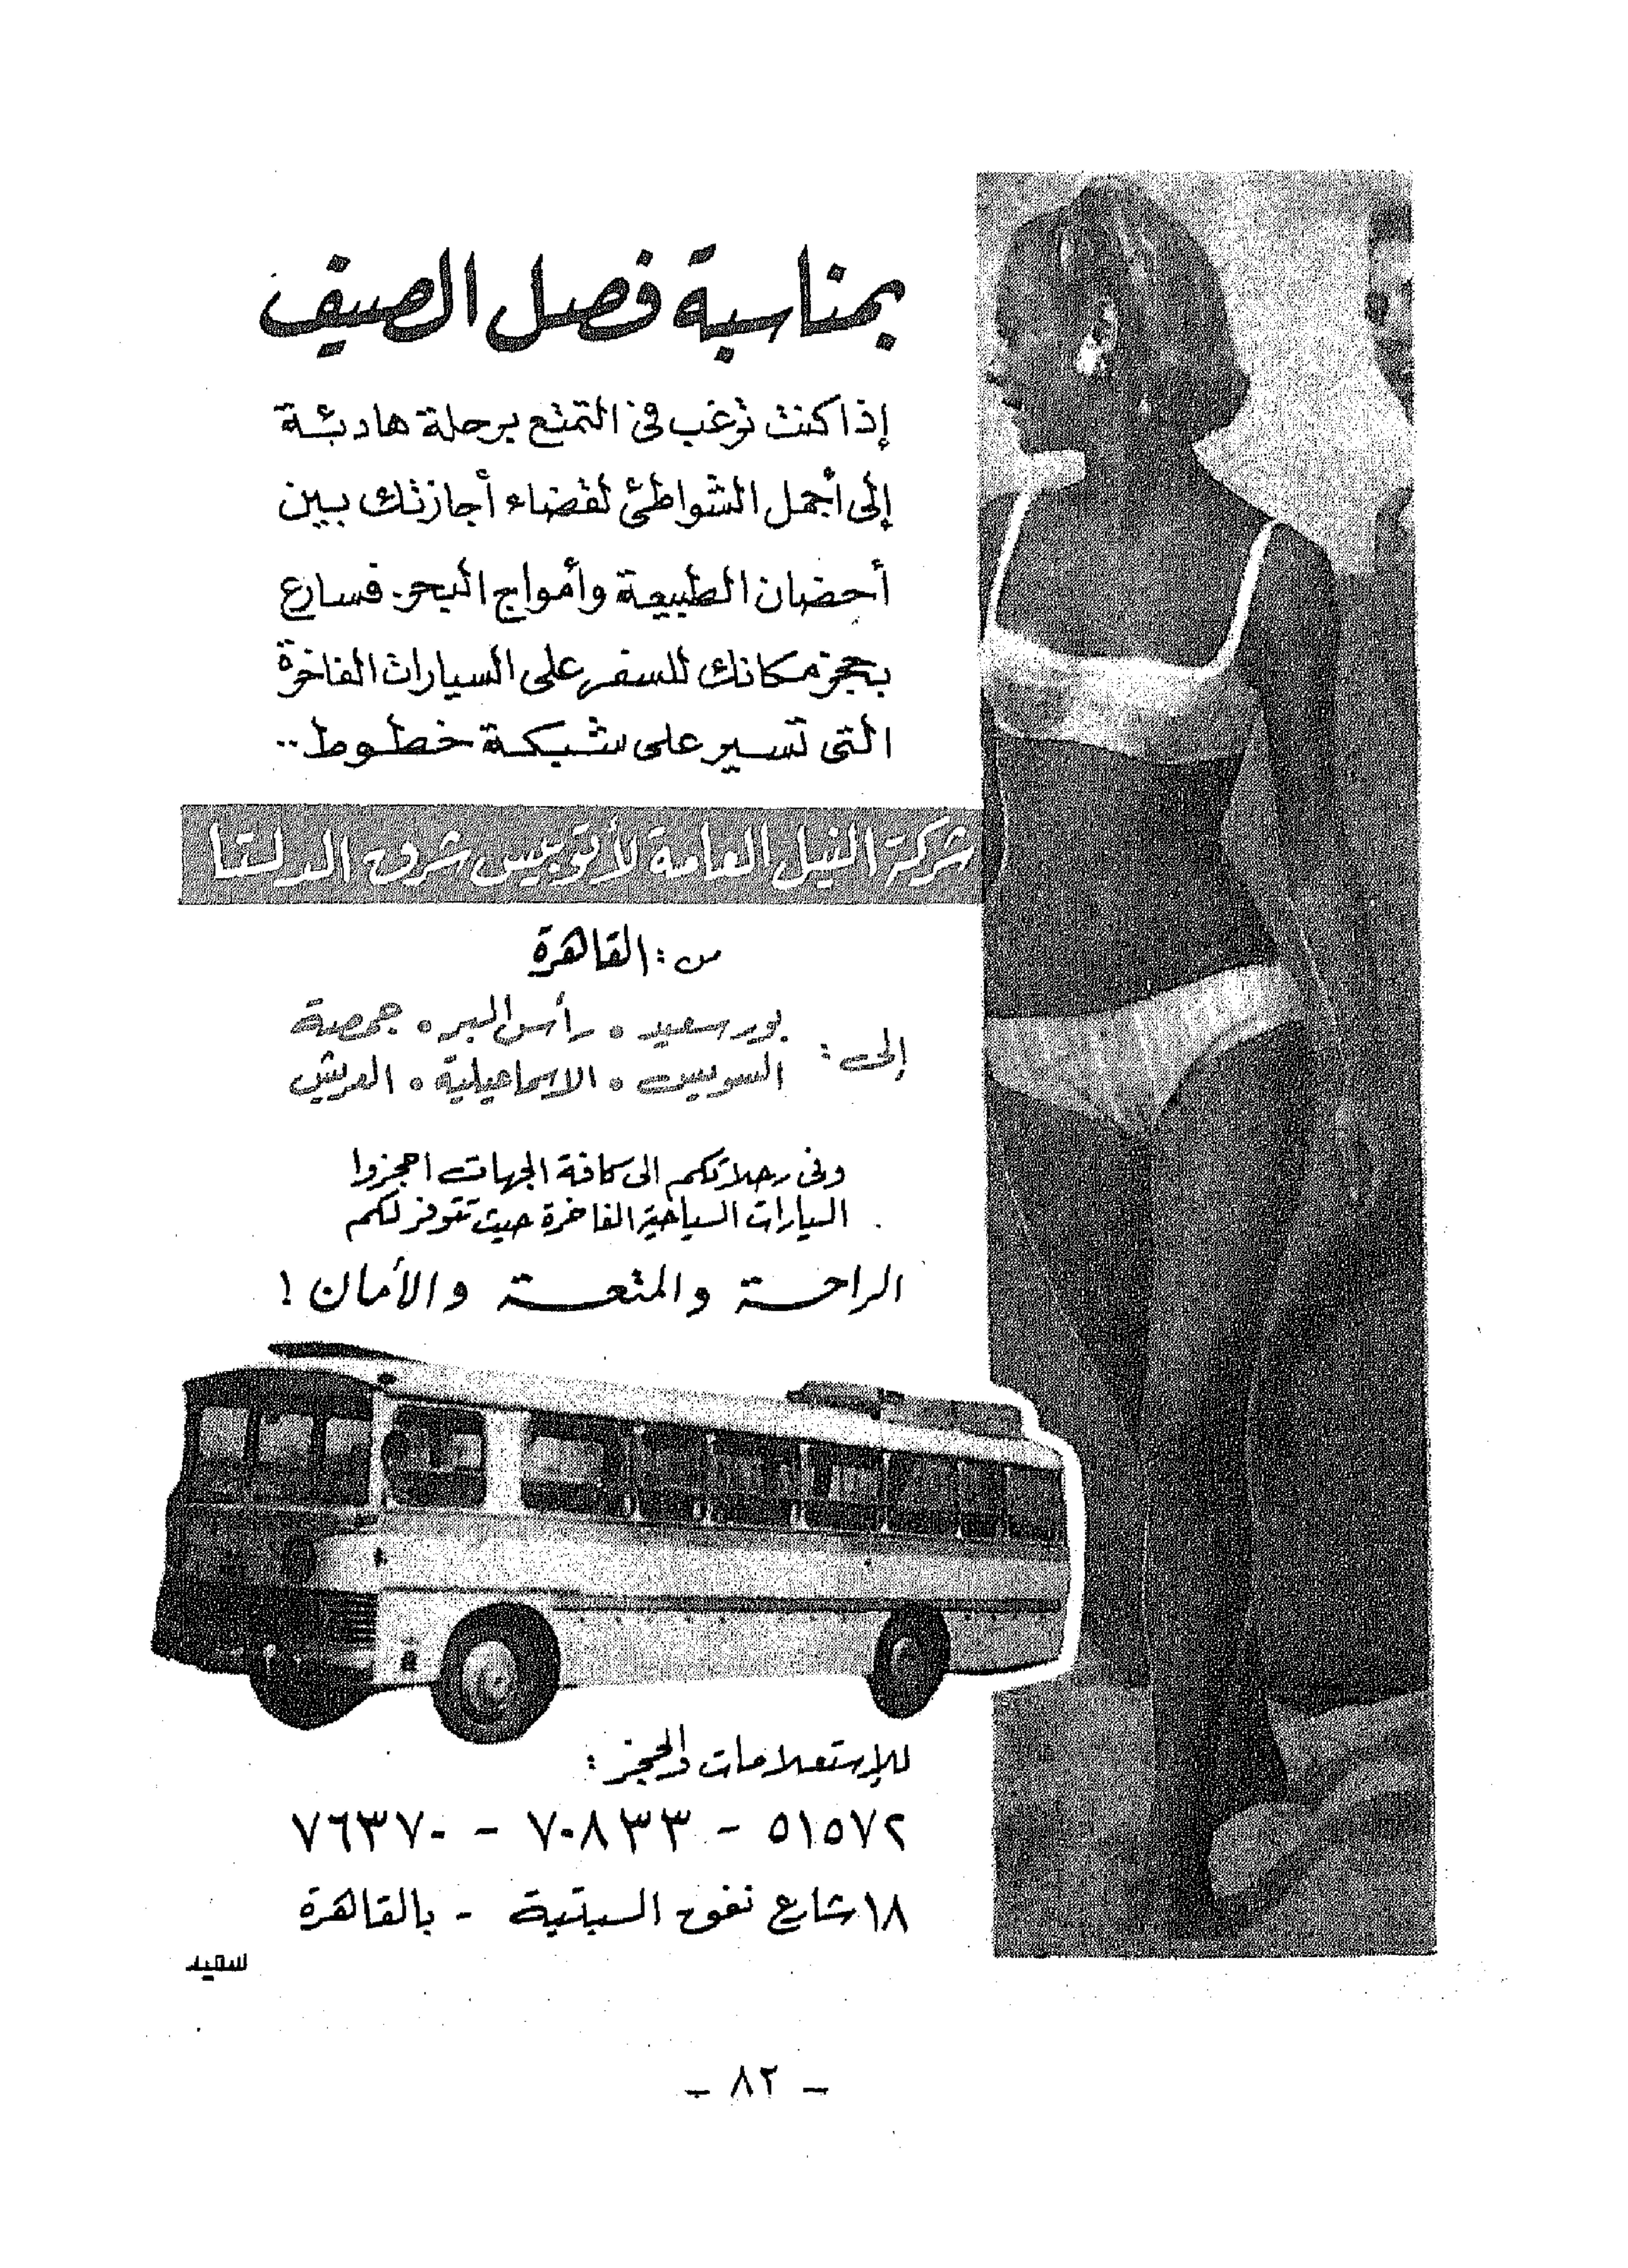 بمناسبة فصل الصيف
إذا كنت ترغب فى التمتع برحلة هادئة
إلى أجمل الشواطئ لقضاء أجازتك بين
أحضان الطبيعة وأمواج البحر. فسارع
بحجز مكانك للسفر على السيارات الفاخرة
التى تسير على شبكة خطوط..
شركة النيل العامة لأتوبيس شرق الدلتا
من : القاهرة
إلى : بورسعيد • رأس البر • جمصة
السويس • الاسماعيلية • العريش
وفى رحلاتكم الى كافة الجهات احجزوا
السيارات السياحية الفاخرة حيث تتوفر لكم
الراحة والمتعة والأمان !
للإستعلامات والحجز :
٥١٥٧٢ - ٧٠٨٣٣ - ٧٦٣٧٠
١٨ شارع نفق السبتية - بالقاهرة
سعيد
- ٨٢ -